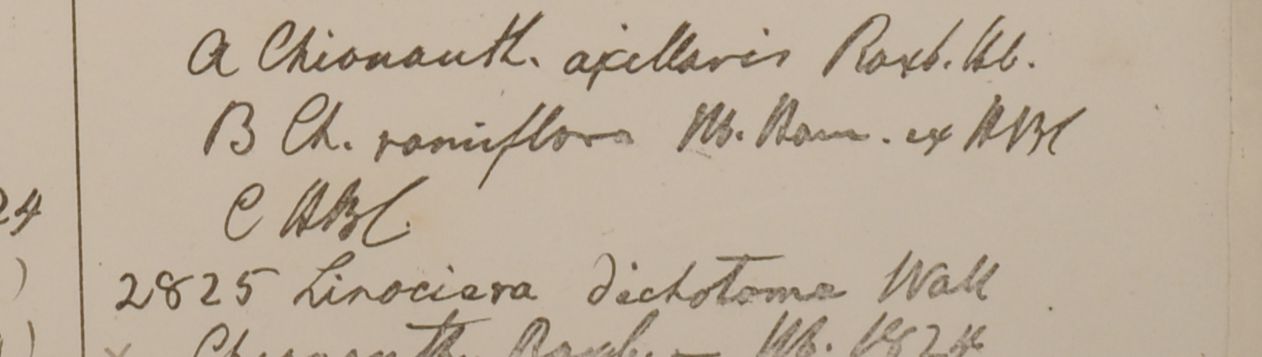 24
a Chionanth. axillaris Roxb. Hb.
B Ch. ramiflora Hb. Ham. ex HBC
C HBC.
2825 Linociera dichotoma Wall
Chionanth. Hb. 1824